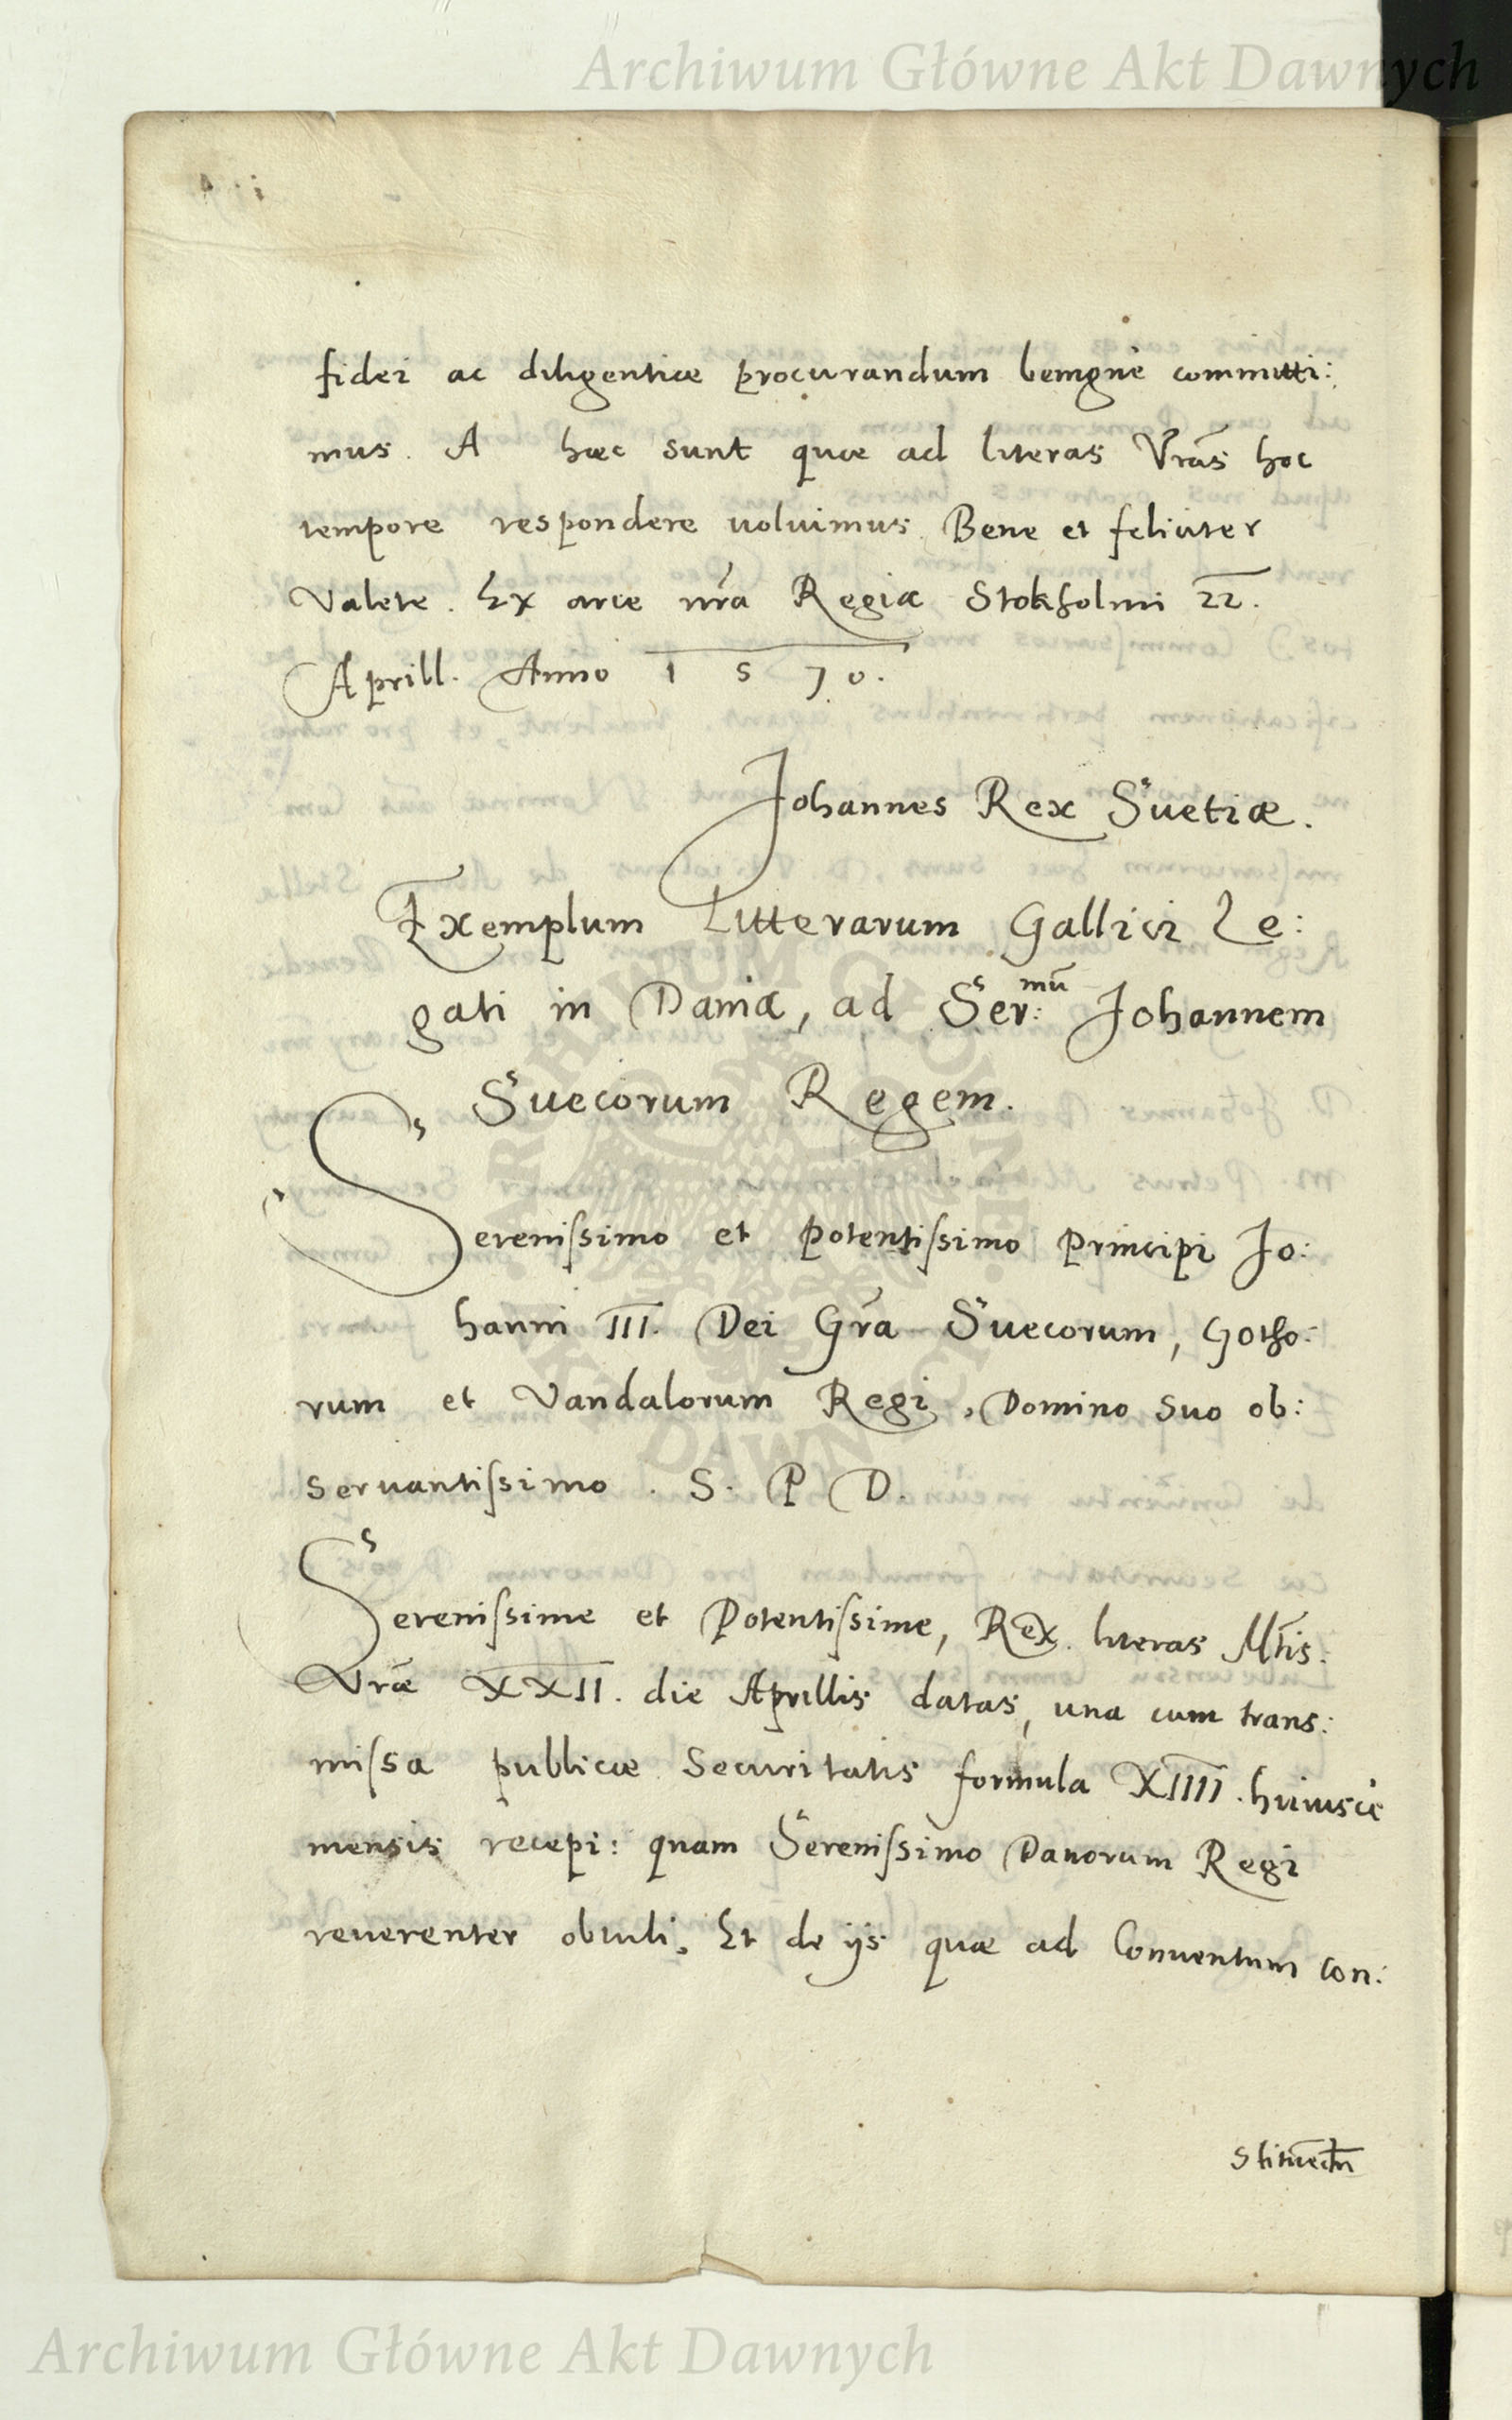 Archiwum Główne Akt Dawnych
fidei ac diligentiæ procurandum benignè committi:
mus. A hæc sunt quæ ad literas Vrãs hoc
tempore respondere uoluimus. Bene et feliciter
Valete. Ex arce nrã Regia Stokholmi 22.
Aprill. Anno 1570.
Johannes Rex Suetiæ.
Exemplum Litterarum Gallici Le:
gati in Dania, ad Ser:mũ Johannem
Suecorum Regem.
Serenissimo et potentissimo Principi Jo:
hanni III. Dei Grã Suecorum, Gotho:
rum et Vandalorum Regi, Domino suo ob:
seruantissimo. S. P D.
Serenissime et Potentissime, Rex. literas Mtis.
Vræ XXII. die Aprillis datas, una cum trans:
missa publicæ Securitatis formula XIIII. huiusce
mensis recepi: quam Serenissimo Danorum Regi
reuerenter obtuli. Et de ijs quæ ad Conuentum con:
ARCHIWUM GŁÓWNE AKT DAWNYCH
Archiwum Główne Akt Dawnych